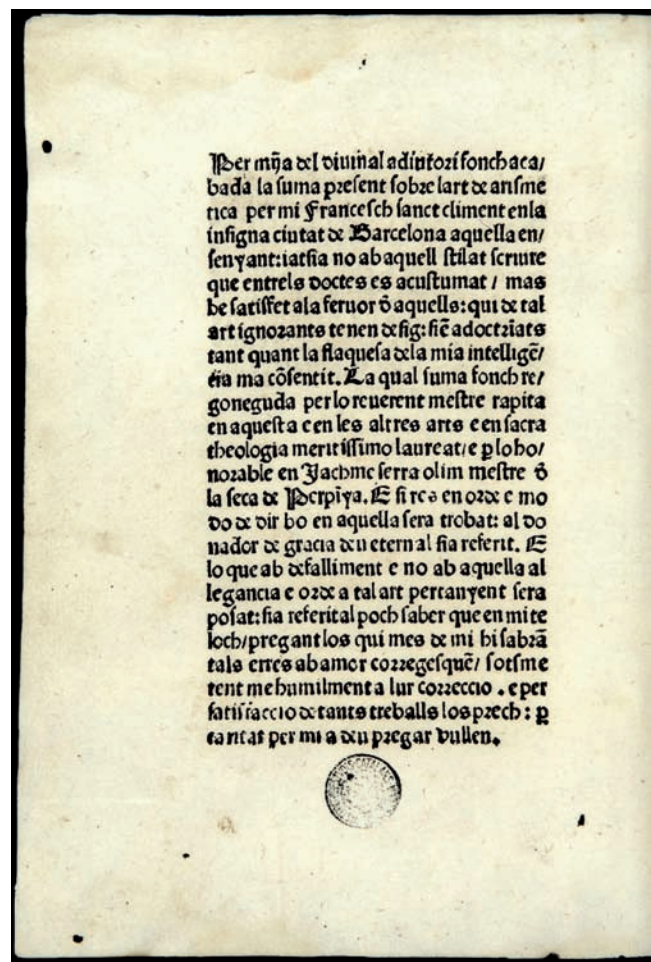 Per mȷ̃a del diuinal adiutori fonch aca/
bada la suma present sobre lart de arisme
tica per mi Francesch sanct climent en la
insigna ciutat de Barcelona aquella en/
senyant: iatsia no ab aquell stilat scriure
que entrels doctes es acustumat / mas
be satisfet a la feruor d̄ aquells: qui de tal
art ignorants tenen desig: siē adoctrīats
tant quant la flaquesa dela mia intelligē/
cia ma cōsentit. La qual suma fonch re/
goneguda per lo reuerent mestre rapita
en aquesta e en les altres arts e en sacra
theologia meritissimo laureat/ e ꝑ lo ho/
norable en Jachme serra olim mestre d̄
la seca de Perpīya. E si res en orde e mo
do de dir bo en aquella sera trobat: al do
nador de gracia deu eternal sia referit. E
lo que ab defalliment e no ab aquella al
legancia e orde a tal art pertanyent sera
posat: sia referit al poch saber que en mi te
loch/ pregant los qui mes de mi hi sabrā
tals erres ab amor corregesquē/ sotsme
tent me humilment a lur correccio . e per
satisfaccio de tants treballs los prech : ꝑ
caritat per mi a deu pregar vullen.